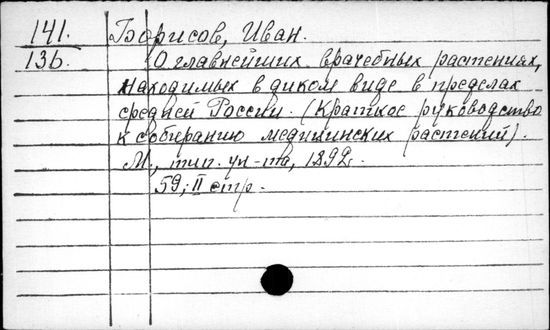 141. Борисов, Иван.
136. О главнейших врачебных растениях,
находимых в диком виде в пределах
средней России. (Краткое руководство
к собиранию медицинских растений).
М., тип. ун-та, 1892.
59, II стр.